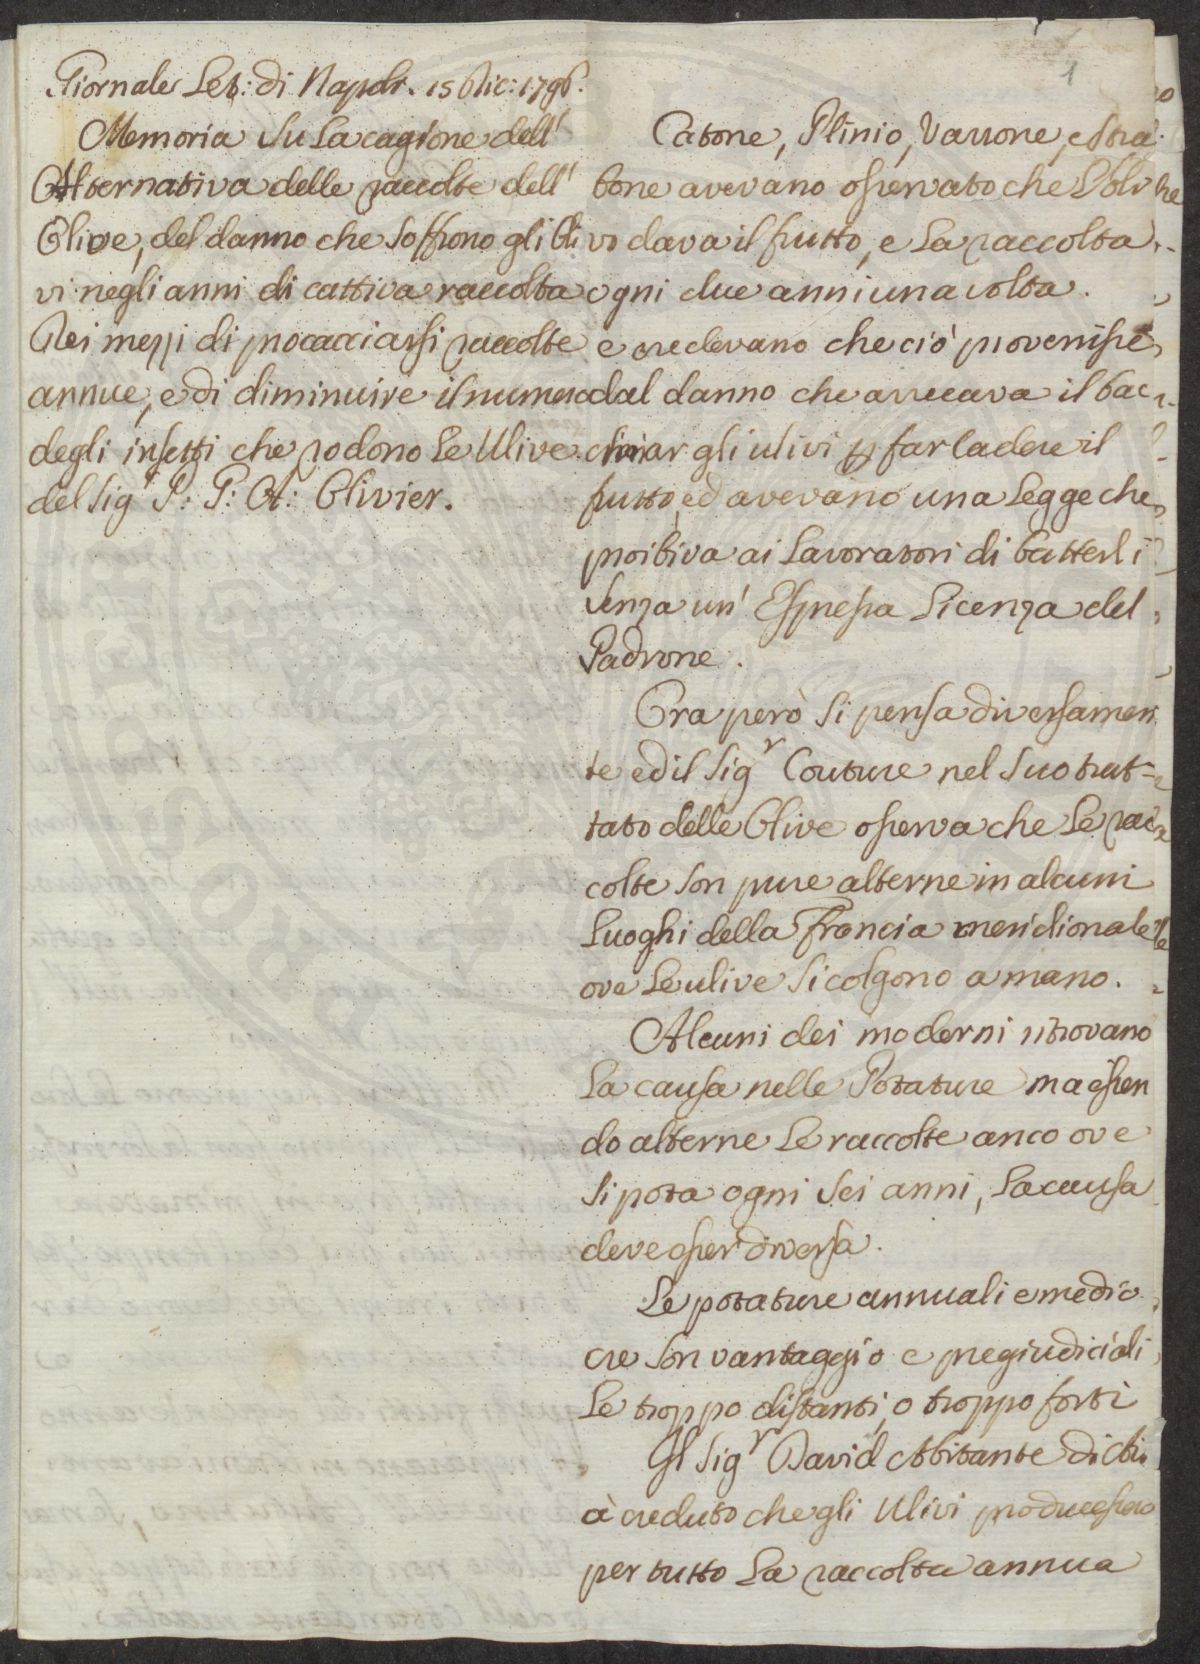 1
Giornale Let: di Napoli. 15 Dic: 1796.
Memoria su la cagione dell'
Alternativa delle raccolte dell'
Olive, del danno che soffrono gli Uli
vi negli anni di cattiva raccolta
Dei mezzi di procacciarsi raccolte
annue, e di diminuire il numero
degli insetti che rodono le Ulive.
del Sigr. P: G: A: Olivier.
Catone, Plinio, Varrone, e Stra
bone avevano osservato che l'Uli
vo dava il frutto, e la raccolta
ogni due anni una volta.
e credevano che ciò provenisse
dal danno che arrecava il bac
chiar gli ulivi p far cadere il
frutto, ed avevano una Legge che
proibiva ai Lavoratori di batterli
senza un' Espressa Licenza del
Padrone.
Ora però si pensa diversamen
te ed il Sigr Couture nel suo trat=
tato delle Olive osserva che le rac
colte son pure alterne in alcuni
Luoghi della Francia meridionale
ove le ulive si colgono a mano.
Alcuni dei moderni ritrovano
la causa nelle Potature ma essen
do alterne le raccolte anco ove
si pota ogni sei anni, la causa
deve esser diversa.
Le potature annuali e medio
cre son vantaggio e pregiudiciali
le troppo distanti, o troppo forti
Il Sigr David Abitante di
à creduto che gli Ulivi producessero
per tutto la raccolta annua